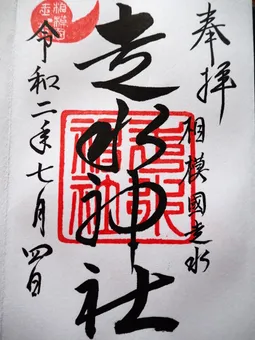 奉拝
相模國走水
走水神社
令和二年七月四日